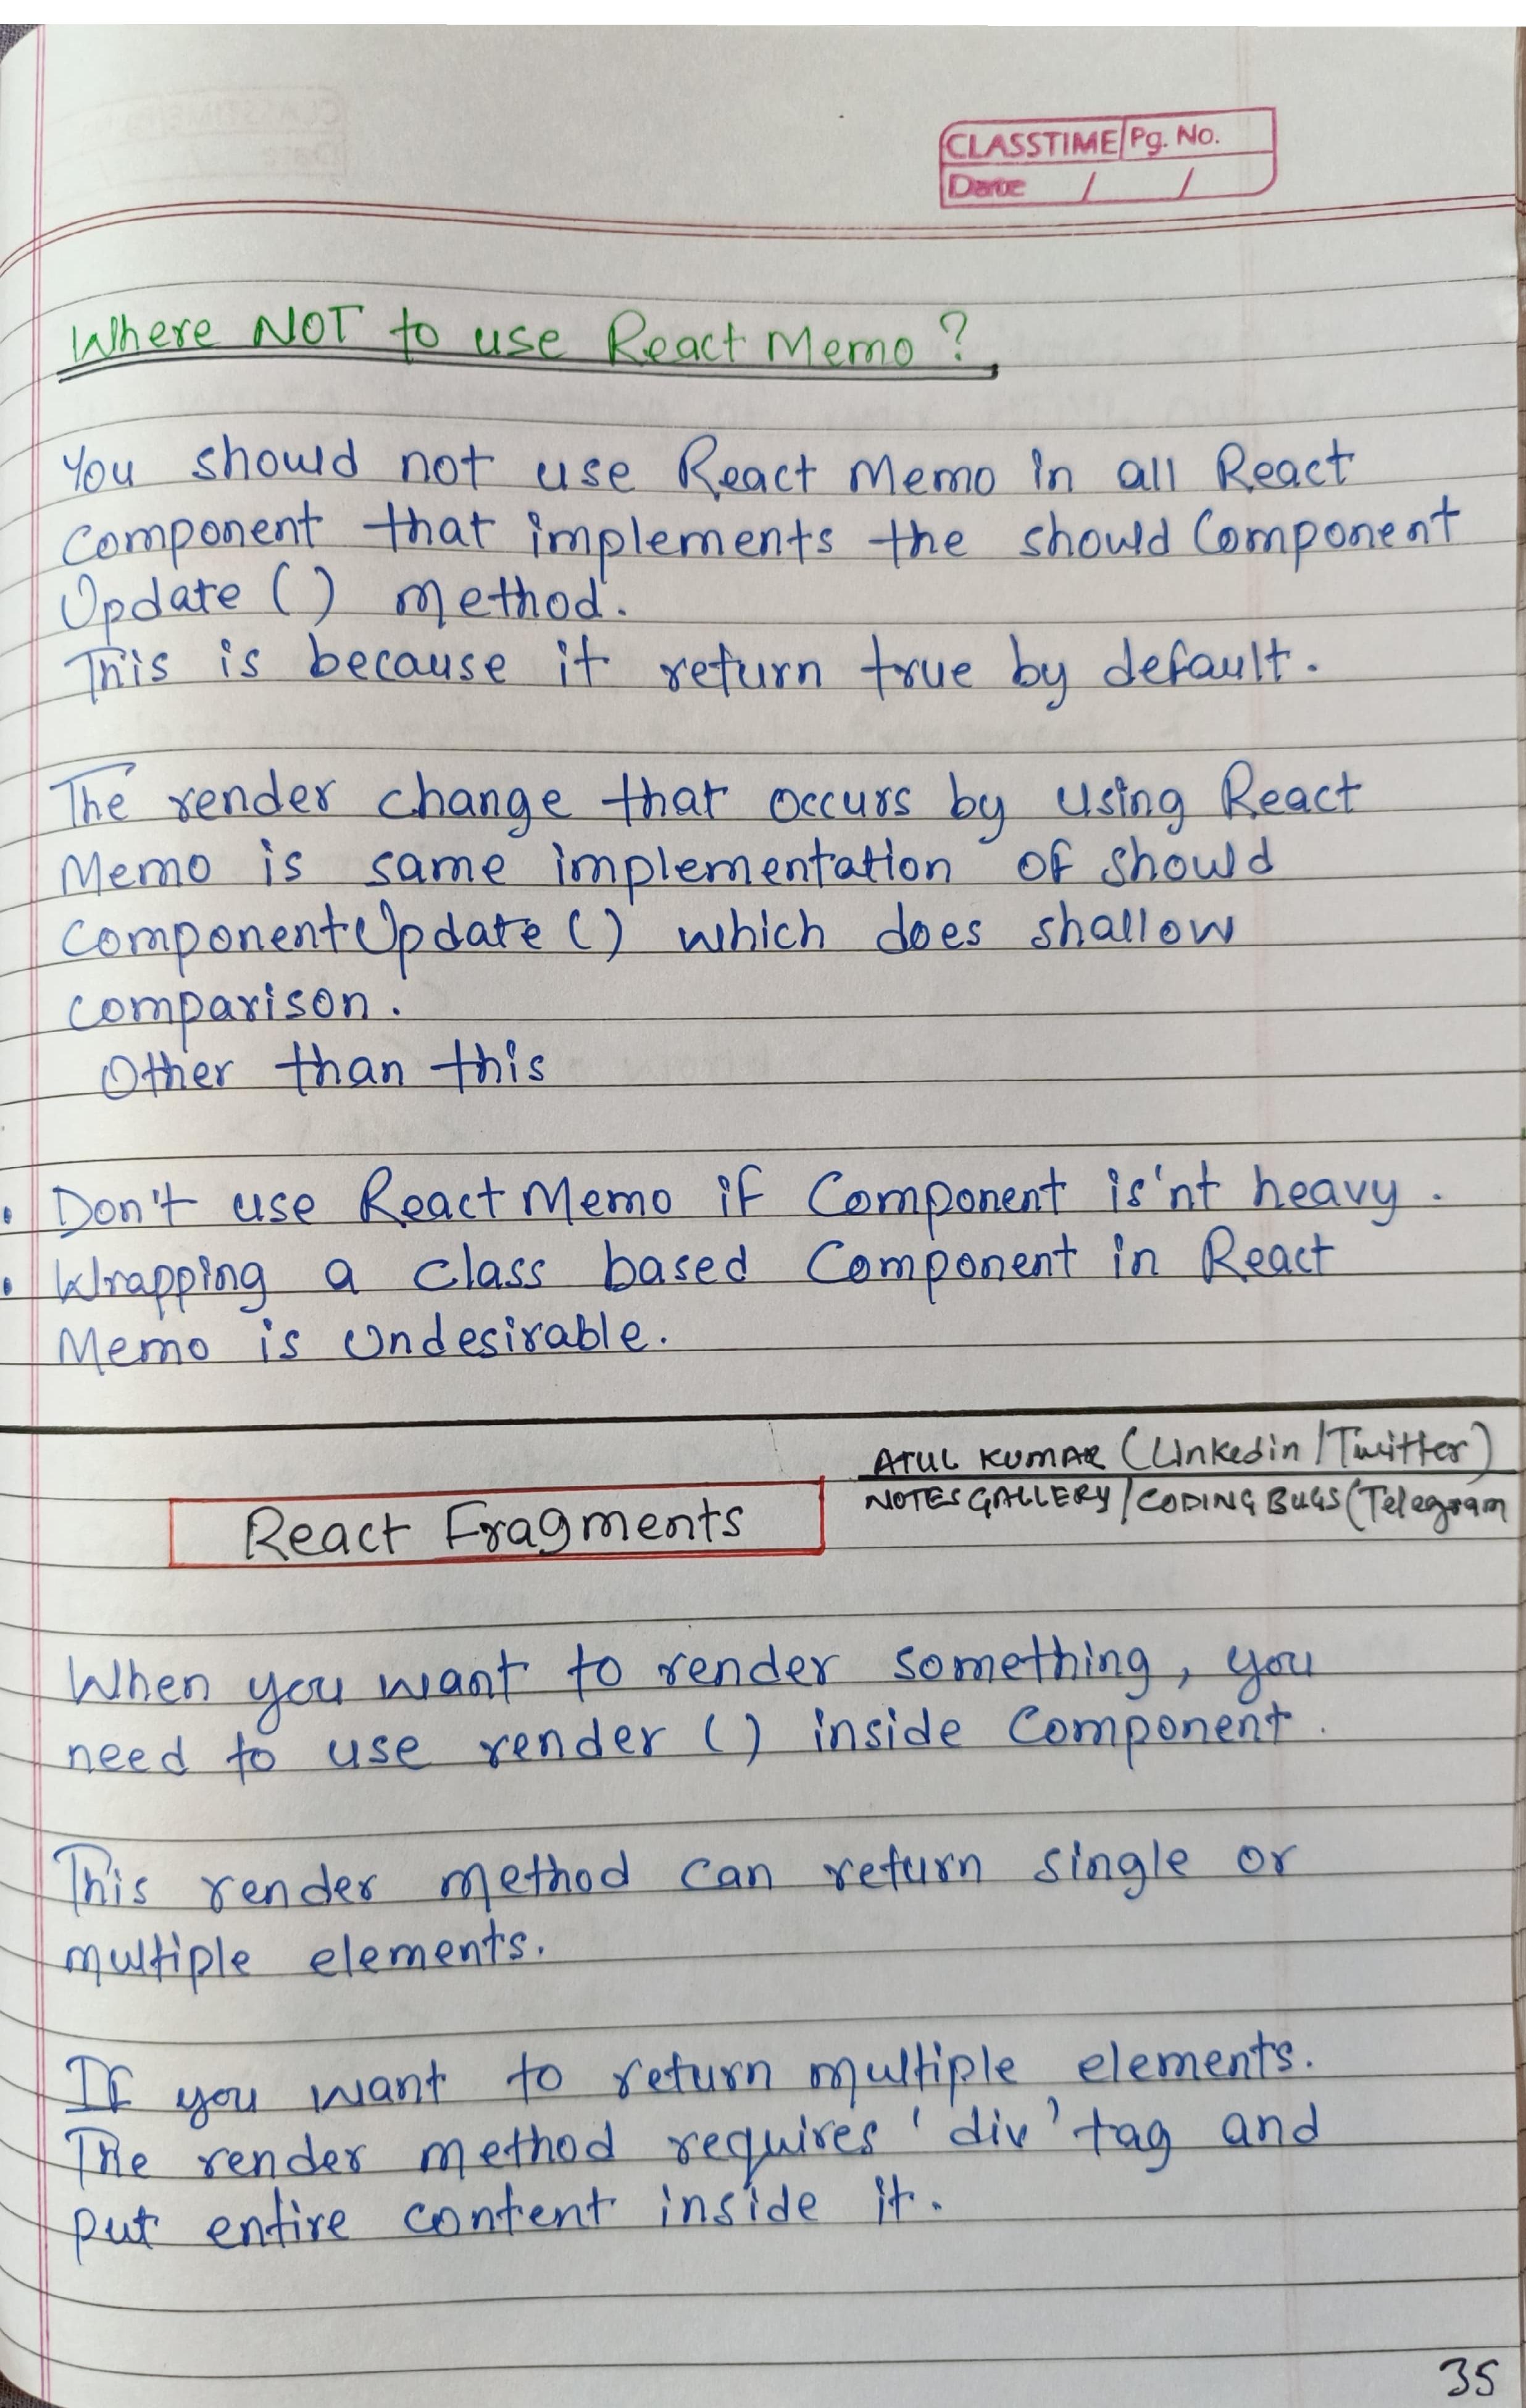 CLASSTIME Pg. No.
Date / /
Where NOT to use React Memo?
You should not use React Memo in all React
Component that implements the should Component
Update () method.
This is because it return true by default.
The render change that occurs by using React
Memo is same implementation of should
ComponentUpdate () which does shallow
comparison.
Other than this
• Don't use React Memo if Component is'nt heavy.
• Wrapping a class based Component in React
Memo is Undesirable.
ATUL KUMAR (Linkedin/Twitter)
NOTES GALLERY/CODING BUGS (Telegram
React Fragments
When you want to render something, you
need to use render () inside Component.
This render method can return single or
multiple elements.
If you want to return multiple elements.
The render method requires 'div' tag and
put entire content inside it.
35